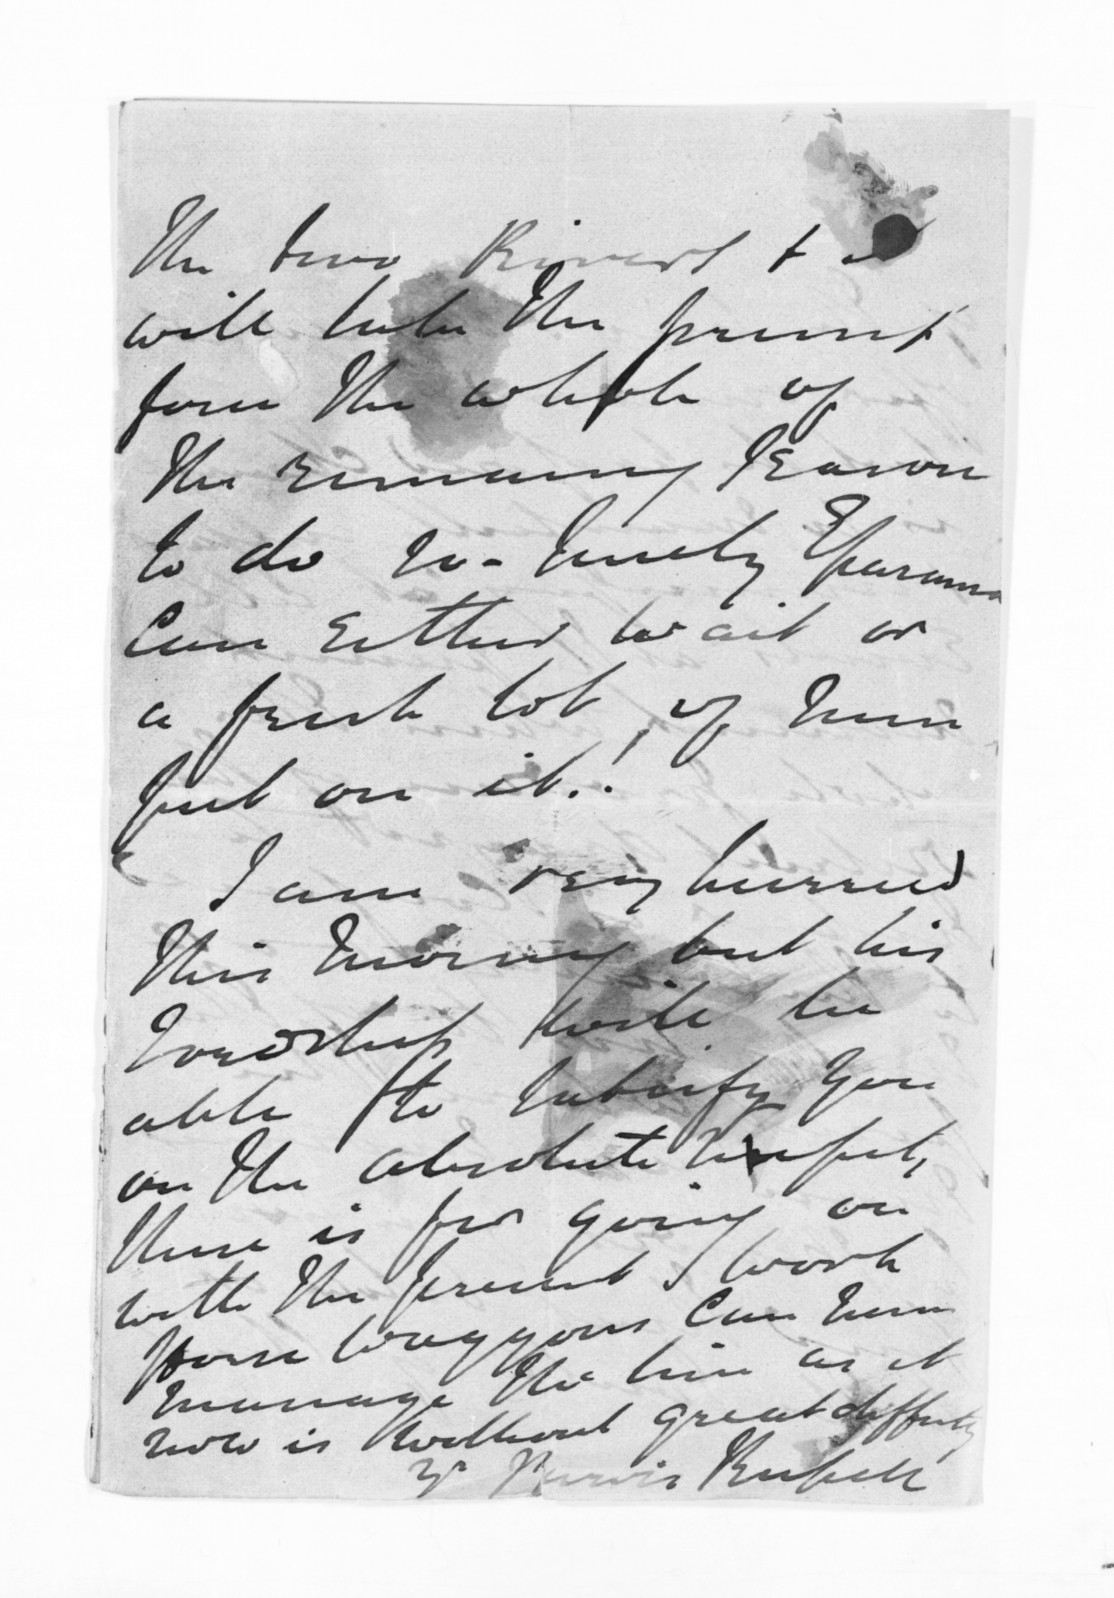 The two Rivers & it
will take the present
force the whole of
the remaining Season
to do so - surely Eparama
Can Either wait or
a fresh lot of men
put on it.!
I am very hurried
this morning but his
Lordship will be
able to satisfy you
on the absolute
there is for going on
with the present work
Horse waggons Can even
manage the line as it
now is without great difficulty
Yr Purvis Russell